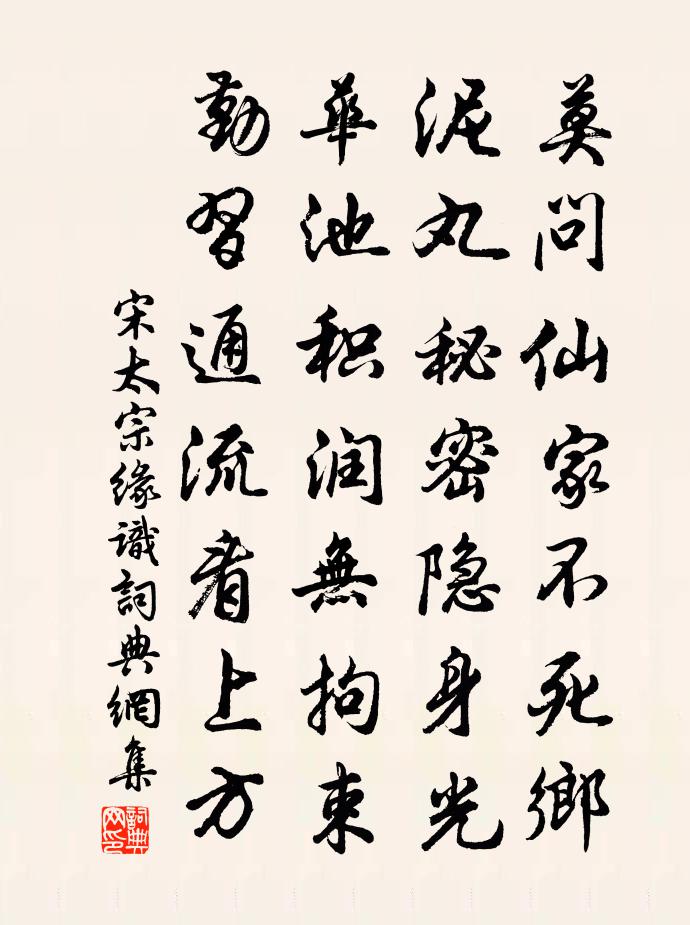 莫问仙家不死鄉
泥丸秘密隐身光
華池积润無拘束
勤習通流看上方
宋太宗緣識詞典網集
詞典网印